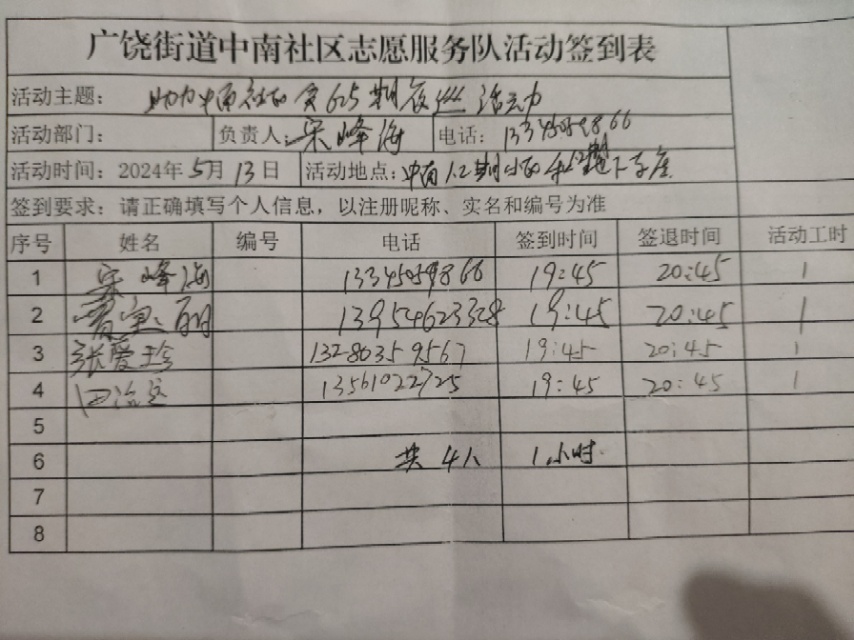 广饶街道中南社区志愿服务队活动签到表
活动主题： 助力中南社区第625期夜巡活动
活动部门： 负责人：宋峰海 电话：13345059866
活动时间：2024年5月13日 活动地点：中南1.2期小区
签到要求：请正确填写个人信息，以注册昵称、实名和编号为准
序号 姓名 编号 电话 签到时间 签退时间 活动工时
1 宋峰海 13345059866 19:45 20:45 1
2 丽 13954623328 19:45 20:45 1
3 张爱珍 13280359567 19:45 20:45 1
4 田 13561022725 19:45 20:45 1
5
6 共4人 1小时
7
8